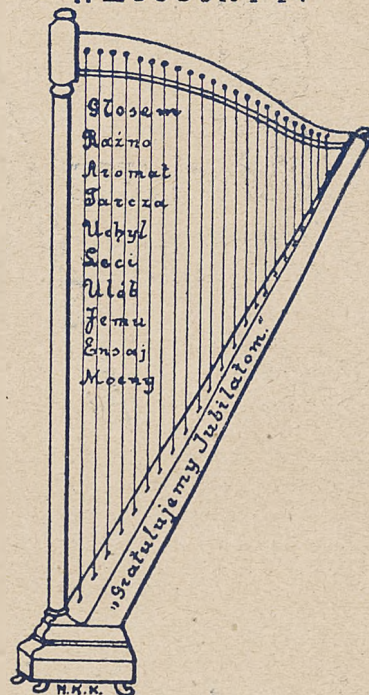 Głosem
Raźno
Aromat
Tarcza
Uchyl
Leci
Ulób
Jemu
Ensaj
Moeny
„Gratulujemy Jubilatom.”
H.K.K.